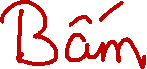 Bấm